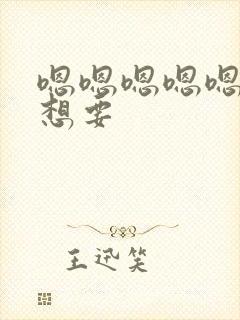 嗯嗯嗯嗯嗯
想要
王迅笑